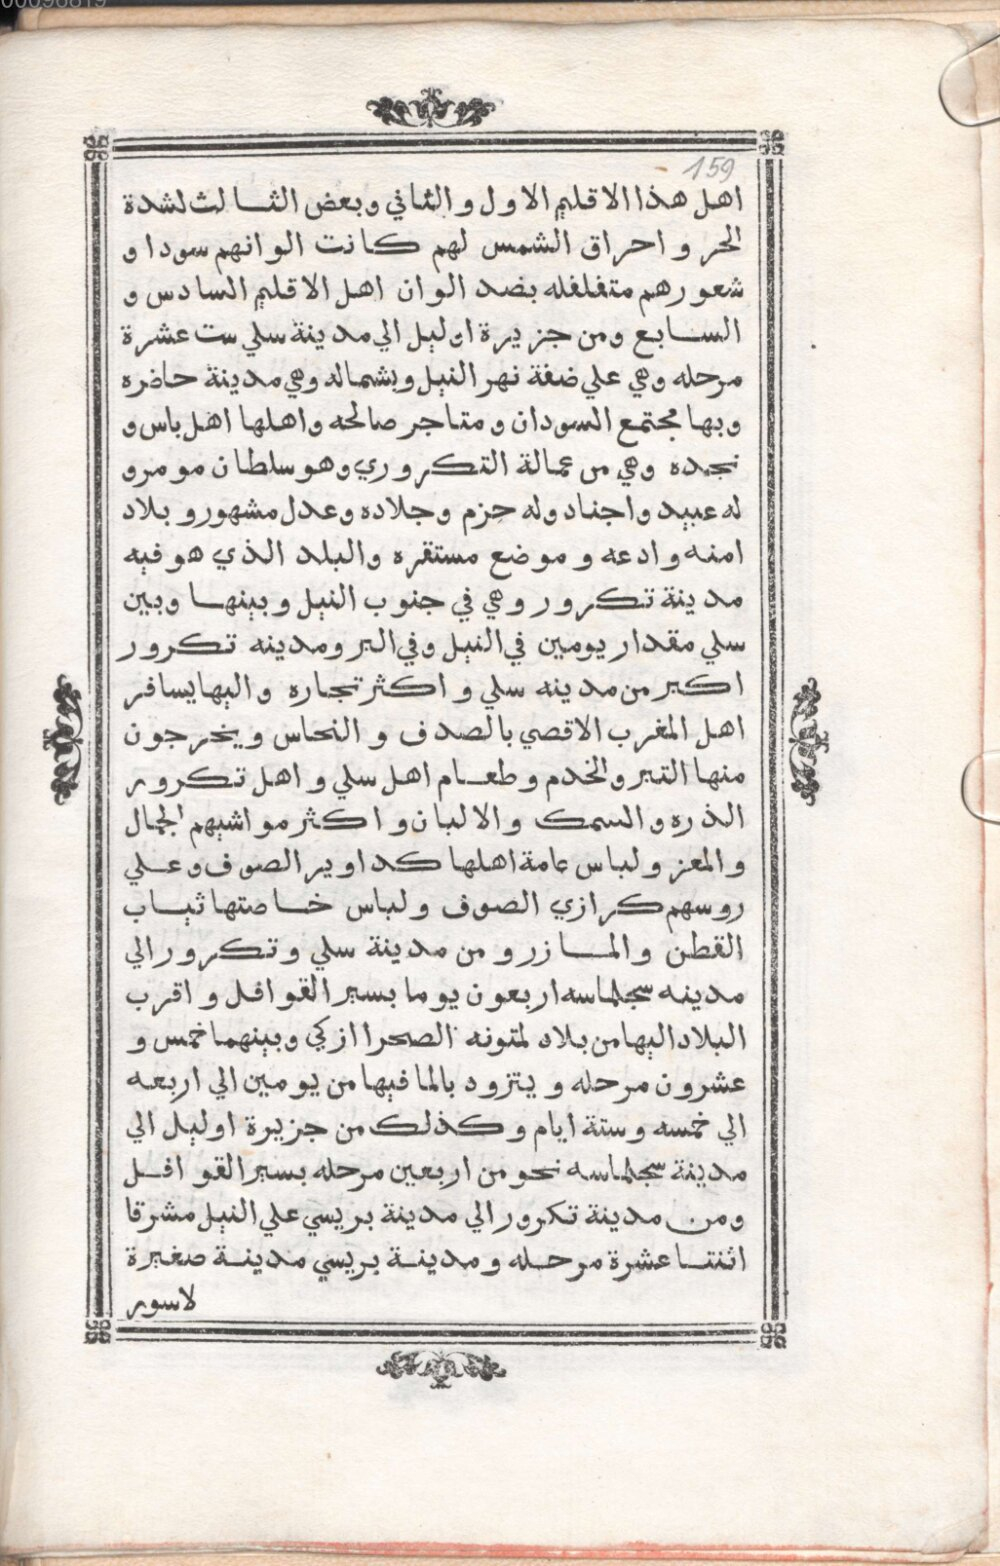 00096819
159
اهل هذا الاقليم الاول والثاني وبعض الثالث لشدة
الحر و احراق الشمس لهم كانت الوانهم سودا و
شعورهم متفلفله بضد الوان اهل الاقليم السادس و
السابع ومن جزيرة اوليل الي مدينة سلي ست عشرة
مرحله وهي علي ضفة نهر النيل وبشماله وهي مدينة حاضره
وبها مجتمع السودان و متاجر صالحه واهلها اهل باس و
نجده وهي من عمالة التكروري وهو سلطان مومر و
له عبيد واجناد وله حزم وجلاده وعدل مشهور و بلاد
امنه وادعه و موضع مستقره والبلد الذي هو فيه
مدينة تكرور وهي في جنوب النيل وبينها وبين
سلي مقدار يومين في النيل وفي البر ومدينه تكرور
اكبر من مدينه سلي و اكثر تجاره واليها يسافر
اهل المغرب الاقصي بالصدف و النحاس ويخرجون
منها التبر والخدم وطعام اهل سلي و اهل تكرور
الذره والسمك والالبان و اكثر مواشيهم الجمال
والمعز ولباس عامة اهلها كداوير الصوف وعلي
روسهم كرازي الصوف ولباس خاصتها ثياب
القطن والمازر و من مدينة سلي وتكرور الي
مدينه سجلماسه اربعون يوما بسير القوافل و اقرب
البلاد اليها من بلاد لمتونه الصحرا ازكي وبينهما خمس و
عشرون مرحله و يتزود بالما فيها من يومين الي اربعه
الي خمسه وستة ايام وكذلك من جزيرة اوليل الي
مدينة سجلماسه نحو من اربعين مرحله بسير القوافل
ومن مدينة تكرور الي مدينة بريسي علي النيل مشرقا
اثنتا عشرة مرحله ومدينة بريسي مدينة صغيرة
لاسور